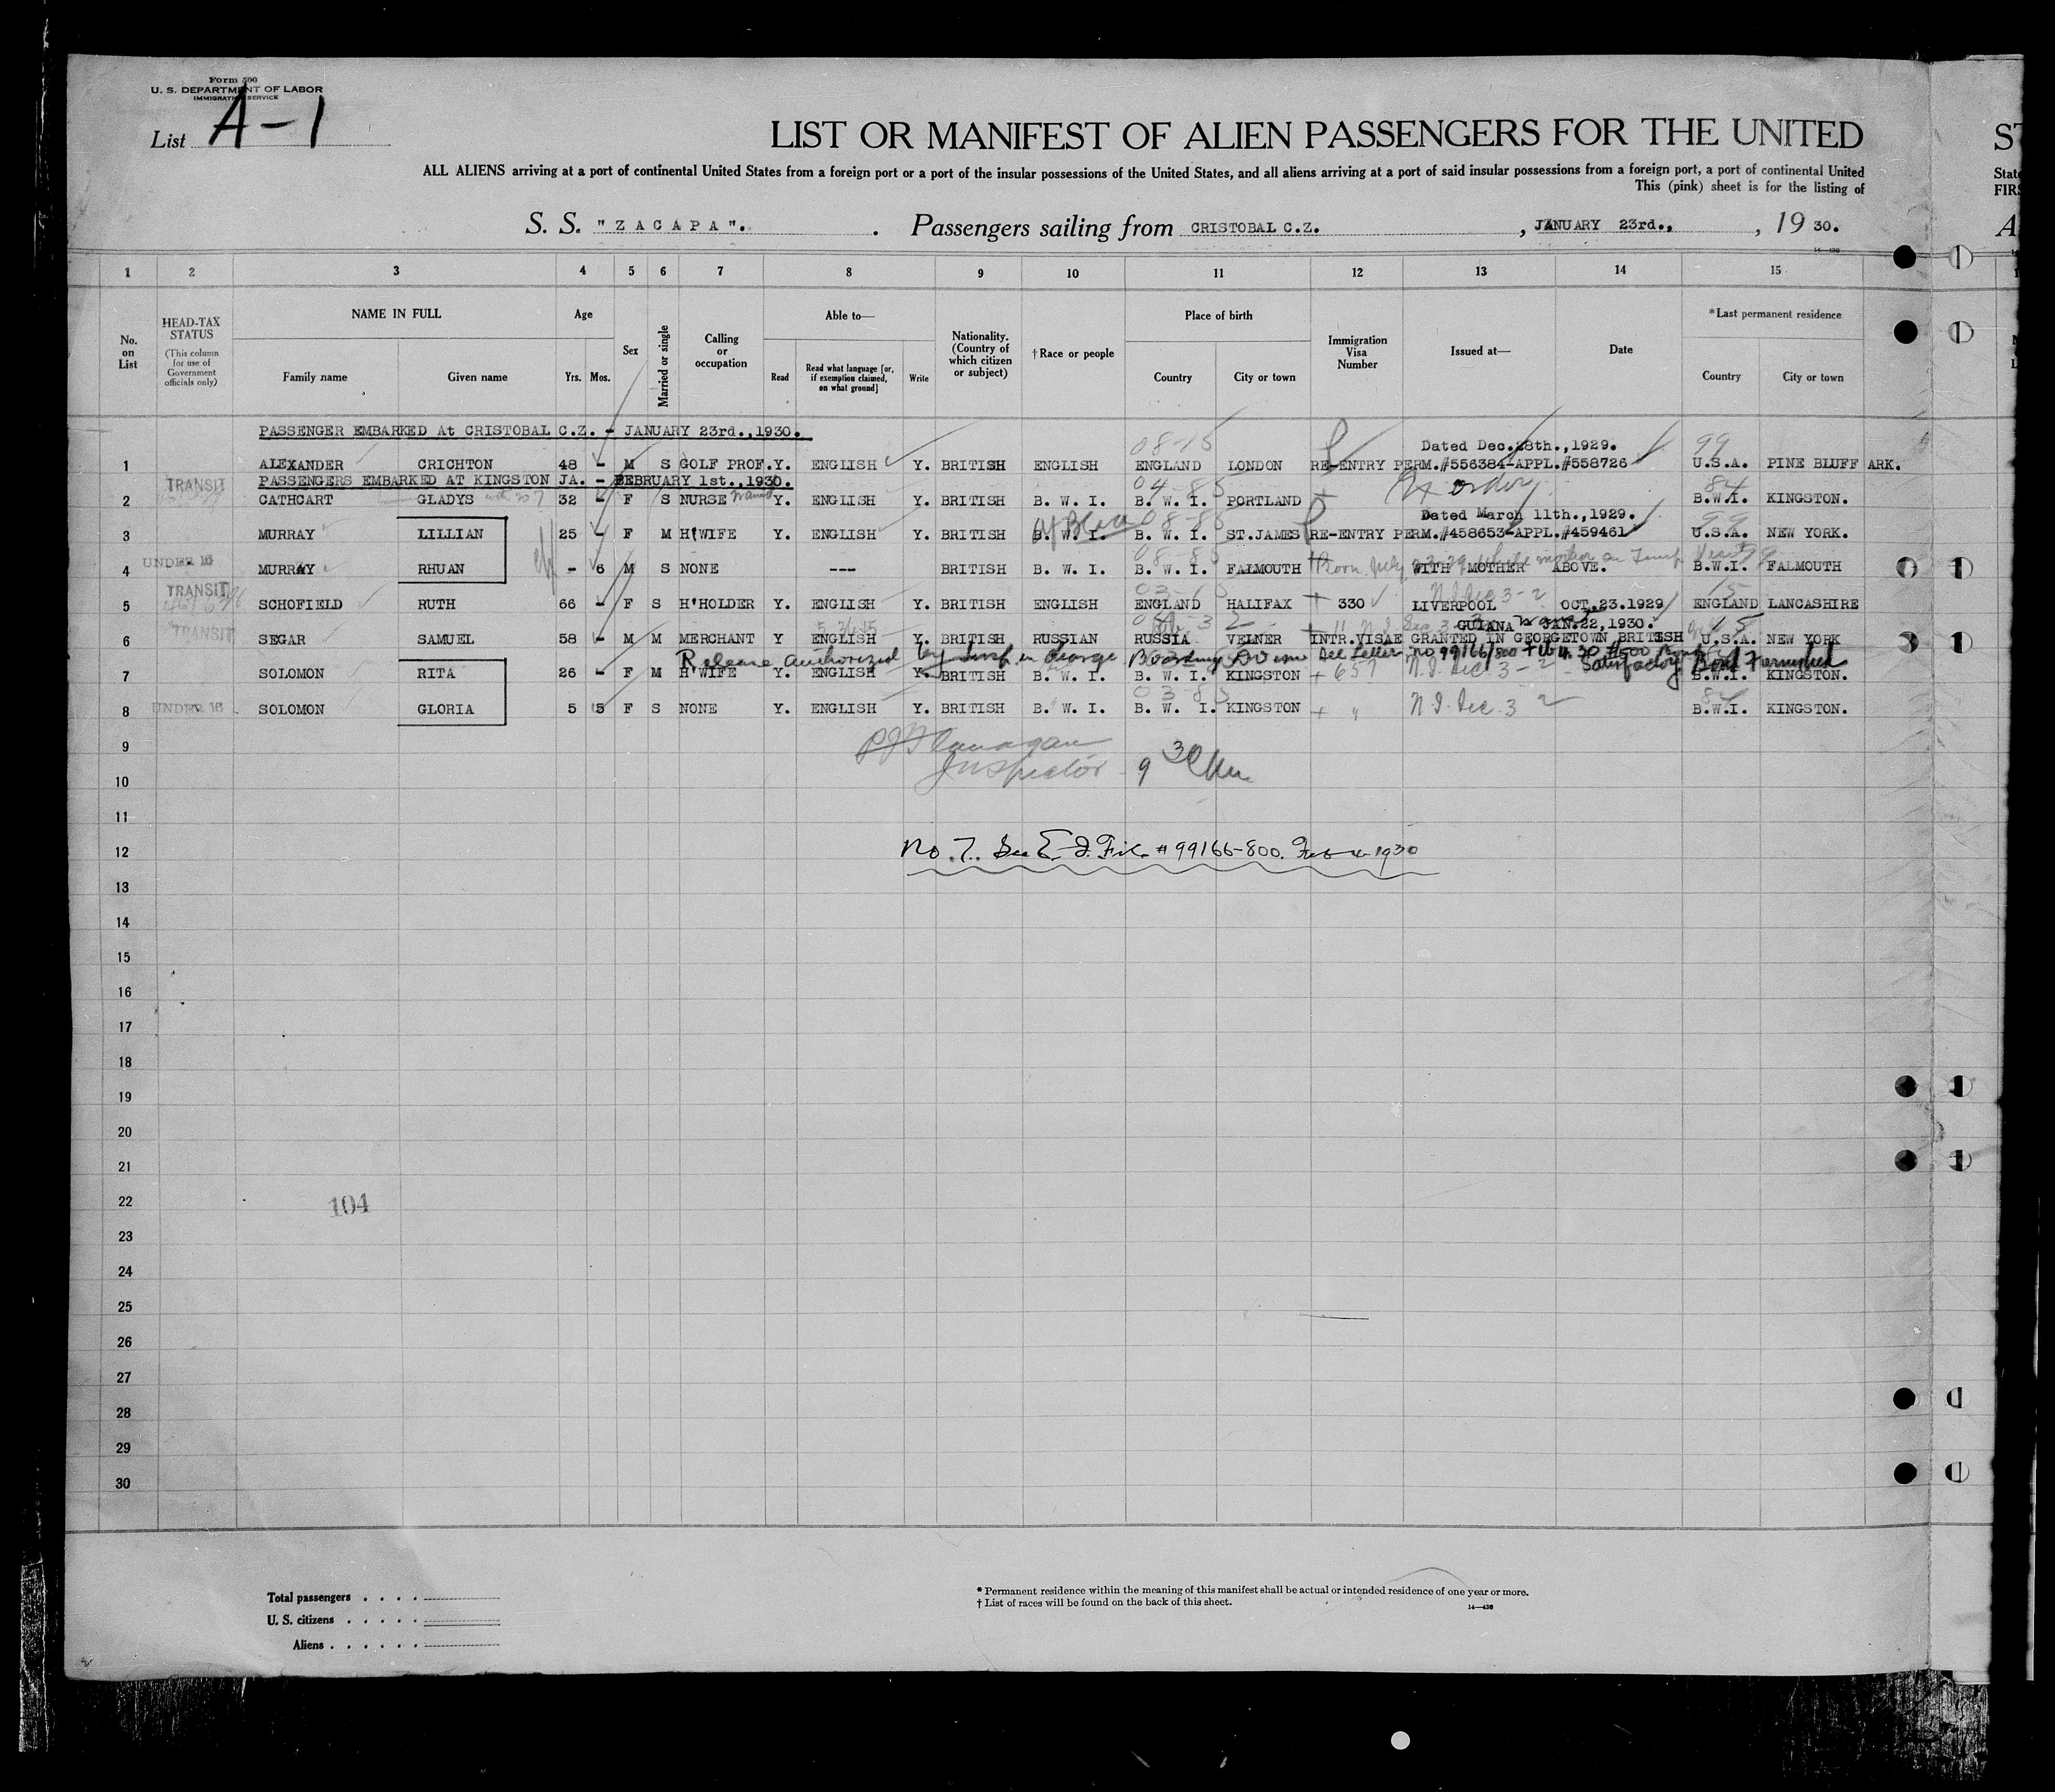 Form 500
U. S. DEPARTMENT OF LABOR
IMMIGRATION SERVICE
List A-1
LIST OR MANIFEST OF ALIEN PASSENGERS FOR THE UNITED
ALL ALIENS arriving at a port of continental United States from a foreign port or a port of the insular possessions of the United States, and all aliens arriving at a port of said insular possessions from a foreign port, a port of continental United
This (pink) sheet is for the listing of
S. S. "ZACAPA". Passengers sailing from CRISTOBAL C.Z. , JANUARY 23rd., , 19 30.
1 2 3 4 5 6 7 8 9 10 11 12 13 14 15
No. on List
HEAD-TAX STATUS
(This column for use of Government officials only)
NAME IN FULL
Family name Given name
Age
Yrs. Mos.
Sex
Married or single
Calling or occupation
Able to—
Read
Read what language [or, if exemption claimed, on what ground]
Write
Nationality. (Country of which citizen or subject)
†Race or people
Place of birth
Country City or town
Immigration Visa Number
Issued at—
Date
*Last permanent residence
Country City or town
PASSENGER EMBARKED At CRISTOBAL C.Z. - JANUARY 23rd.,1930.
08-15 Dated Dec.28th.,1929. 99
1 ALEXANDER CRICHTON 48 - M S GOLF PROF. Y. ENGLISH Y. BRITISH ENGLISH ENGLAND LONDON RE-ENTRY PERM.#556384-APPL.#558726 U.S.A. PINE BLUFF ARK.
PASSENGERS EMBARKED AT KINGSTON JA. - FEBRUARY 1st.,1930.
TRANSIT 04-85 84
2 CATHCART GLADYS 32 F S NURSE Y. ENGLISH Y. BRITISH B. W. I. B. W. I. PORTLAND B.W.I. KINGSTON.
08-85 Dated March 11th.,1929. 99
3 MURRAY LILLIAN 25 - F M H'WIFE Y. ENGLISH Y. BRITISH B. W. I. B. W. I. ST.JAMES RE-ENTRY PERM.#458653-APPL.#459461 U.S.A. NEW YORK.
UNDER 16 08-85
4 MURRAY RHUAN - 6 M S NONE --- BRITISH B. W. I. B. W. I. FALMOUTH WITH MOTHER ABOVE. B.W.I. FALMOUTH
TRANSIT 15
5 SCHOFIELD RUTH 66 - F S H'HOLDER Y. ENGLISH Y. BRITISH ENGLISH ENGLAND HALIFAX 330 LIVERPOOL OCT.23.1929 ENGLAND LANCASHIRE
TRANSIT GUIANA JAN.22,1930.
6 SEGAR SAMUEL 58 - M M MERCHANT Y ENGLISH Y. BRITISH RUSSIAN RUSSIA VELNER INTR.VISAE GRANTED IN GEORGETOWN BRITISH U.S.A. NEW YORK
Release authorized by Insp. in charge Boarding See Letter No 99166/800 Feb 4. 30 $500 Satisfactory Bond Furnished
7 SOLOMON RITA 26 - F M H'WIFE Y. ENGLISH Y. BRITISH B. W. I. B. W. I. KINGSTON 657 N.I. Sec. 3-2 B.W.I. KINGSTON.
UNDER 16
8 SOLOMON GLORIA 5 5 F S NONE Y. ENGLISH Y. BRITISH B. W. I. B. W. I. KINGSTON " N.I. Sec. 3-2 B.W.I. KINGSTON.
9 P.J. Flanagan
Inspector 9 30
10
11
12 No. 7. See File #99166-800. Feb 4-1930
13
14
15
16
17
18
19
20
21
22 104
23
24
25
26
27
28
29
30
Total passengers . . . .
U. S. citizens . . . . .
Aliens . . . . . .
* Permanent residence within the meaning of this manifest shall be actual or intended residence of one year or more.
† List of races will be found on the back of this sheet.
14—436